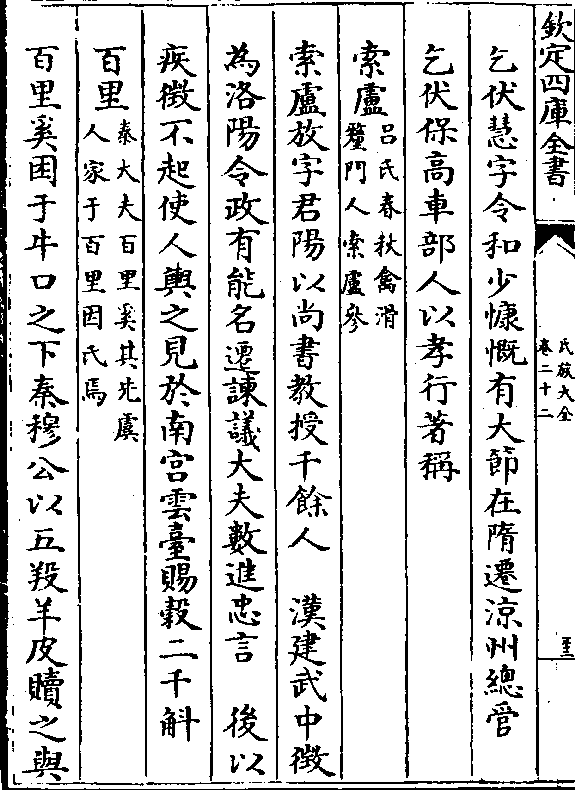 欽定四庫全書
氏族大全
卷二十二
乞伏慧字令和少慷慨有大節在隋遷涼州總管
乞伏保高車部人以孝行著稱
索盧
吕氏春秋禽滑
釐門人索盧參
索盧放字君陽以尚書教授千餘人 漢建武中徵
為洛陽令政有能名遷諫議大夫數進忠言 後以
疾徵不起使人輿之見於南宮雲臺賜穀二千斛
百里
秦大夫百里奚其先虞
人家于百里因氏焉
百里奚困于牛口之下秦穆公以五羖羊皮贖之與